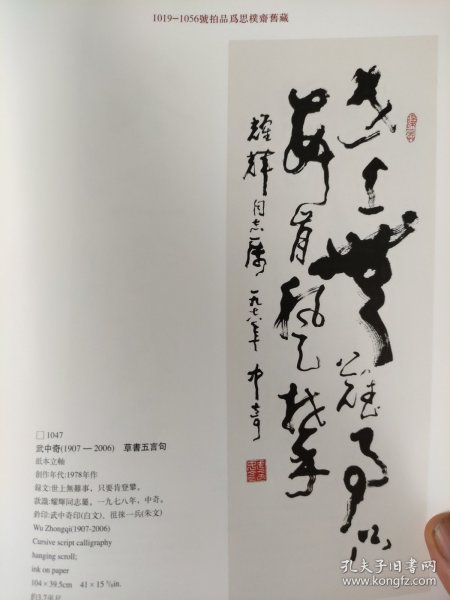 1019-1056號拍品爲思樸齋舊藏
世上無難事只
要肯登攀
耀輝同志屬 一九七八年 中奇
□ 1047
武中奇(1907 — 2006) 草書五言句
紙本立軸
創作年代:1978年作
錄文:世上無難事，只要肯登攀。
款識:耀輝同志屬，一九七八年，中奇。
鈐印:武中奇印(白文)、抓抹一兵(朱文)
Wu Zhongqi(1907-2006)
Cursive script calligraphy
hanging scroll;
ink on paper
104×39.5cm 41×15 ⅝in.
約3.7平尺
孔夫子旧书网